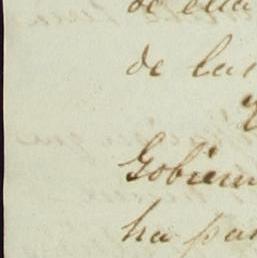 de ella
de las
Gobiern
ha pa